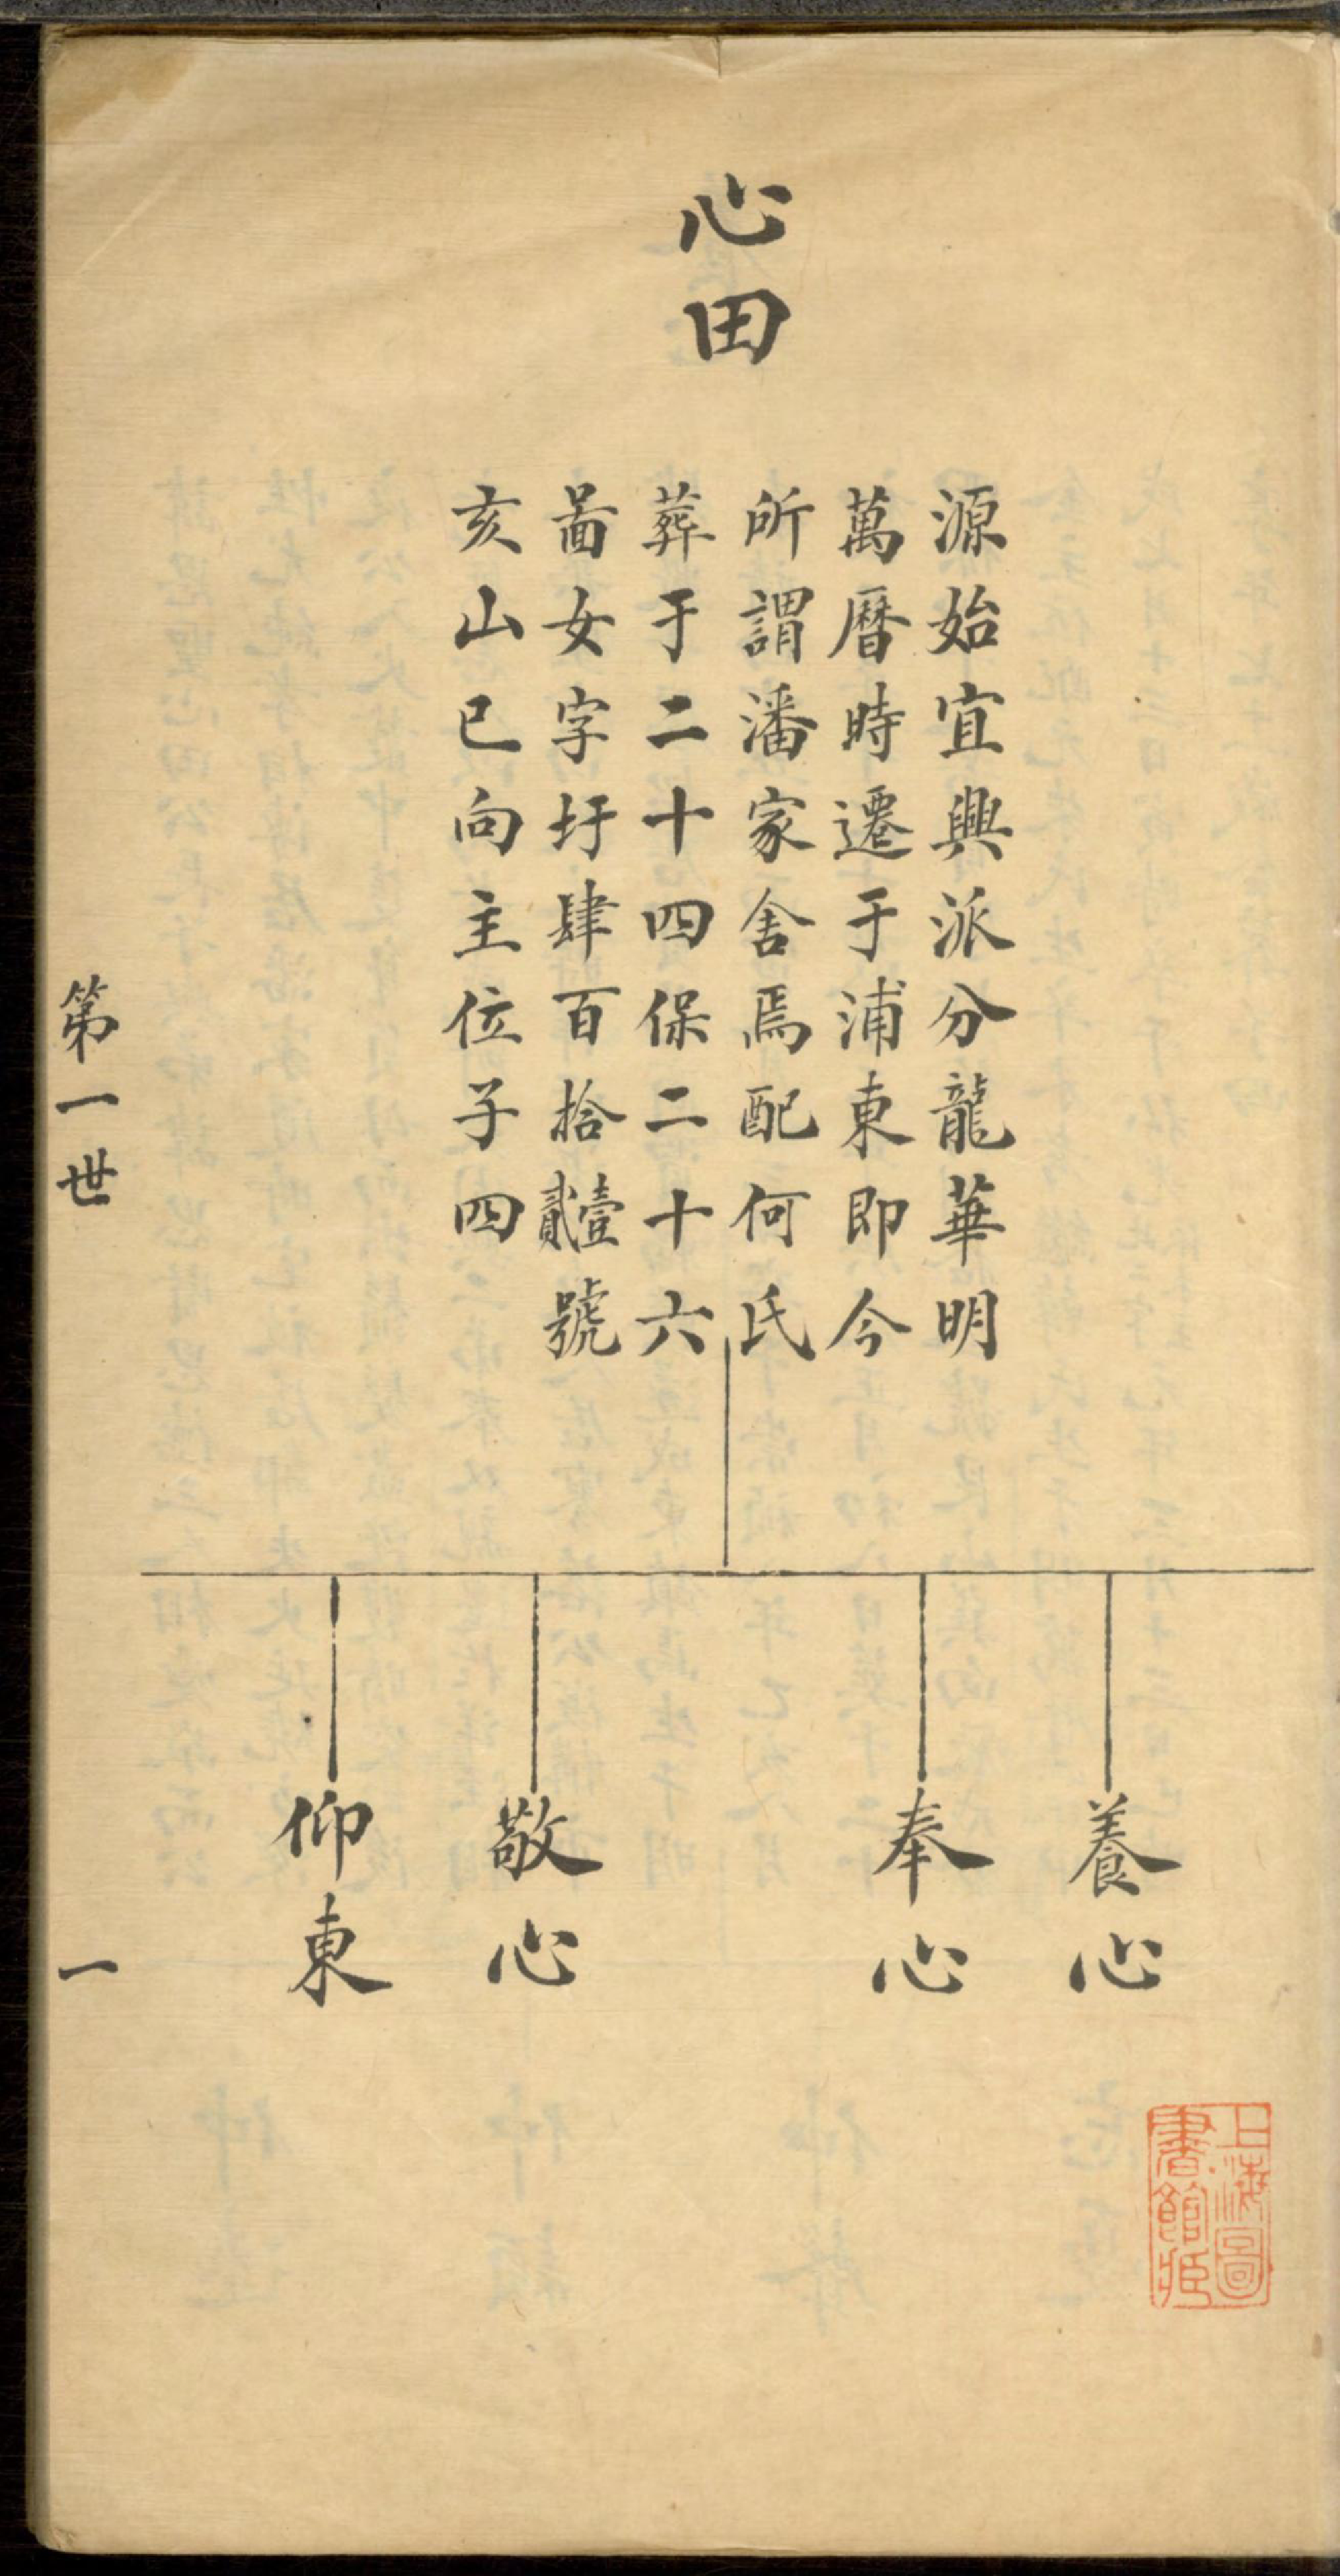 心田
源始宜興派分龍華明
萬曆時遷于浦東即今
所謂潘家舍焉配何氏
葬于二十四保二十六
啚女字圩肆百拾壹貳號
亥山巳向主位子四
養心
奉心
敬心
仰東
第一世
一
上海圖
書館藏